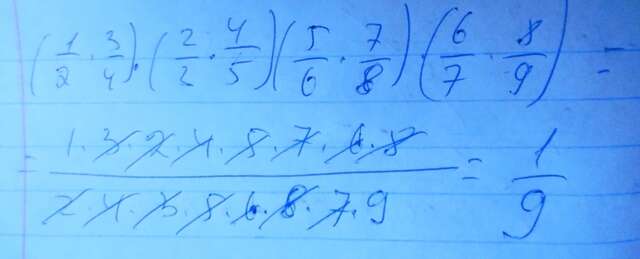 (1/2 · 3/4) · (2/3 · 4/5) (5/6 · 7/8) · (6/7 · 8/9) =
= 1·3·2·4·5·7·6·8 / 2·4·3·5·6·8·7·9 = 1/9